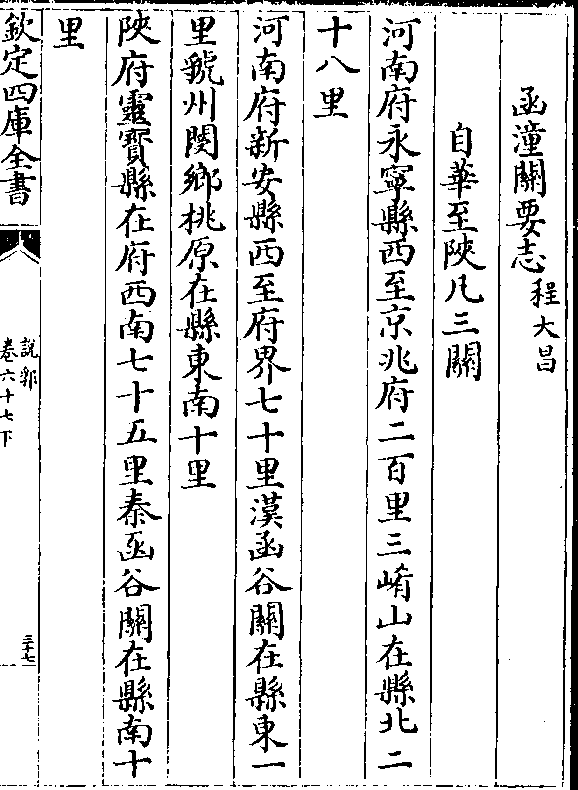 函潼關要志 程大昌
自華至陝凡三關
河南府永寧縣西至京兆府二百里三崤山在縣北二
十八里
河南府新安縣西至府界七十里漢函谷關在縣東一
里虢州閿鄉桃原在縣東南十里
陝府靈寳縣在府西南七十五里秦函谷關在縣南十
里
欽定四庫全書
說郛
卷六十七下
三十七